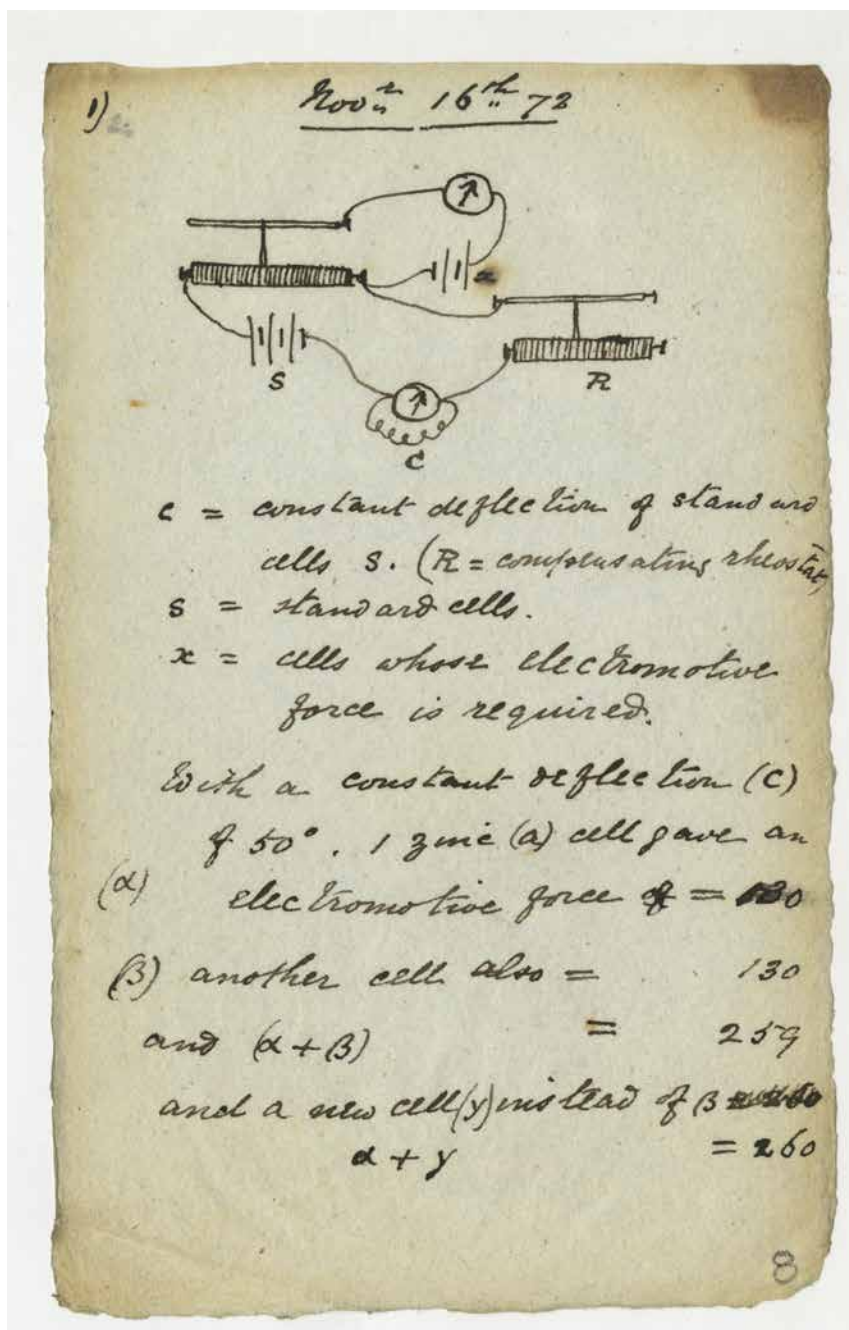 1) Nov.r 16th 72
x
S
R
C
c = constant deflection of standard
cells S. (R = compensating rheostat)
s = standard cells.
x = cells whose electromotive
force is required.
With a constant deflection (C)
of 50°. 1 zinc (a) cell gave an
(α) electromotive force = 130
(β) another cell also = 130
and (α + β) = 259
and a new cell (y) instead of β
α + y = 260
8